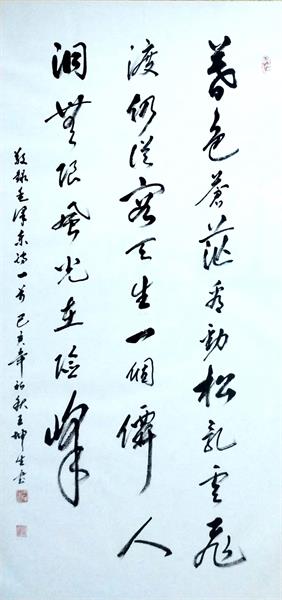 暮色蒼茫看勁松乱雲飛
渡仍從容天生一個僊人
洞無限風光在險峰
敬録毛澤東詩一首己亥年初秋王坤生書